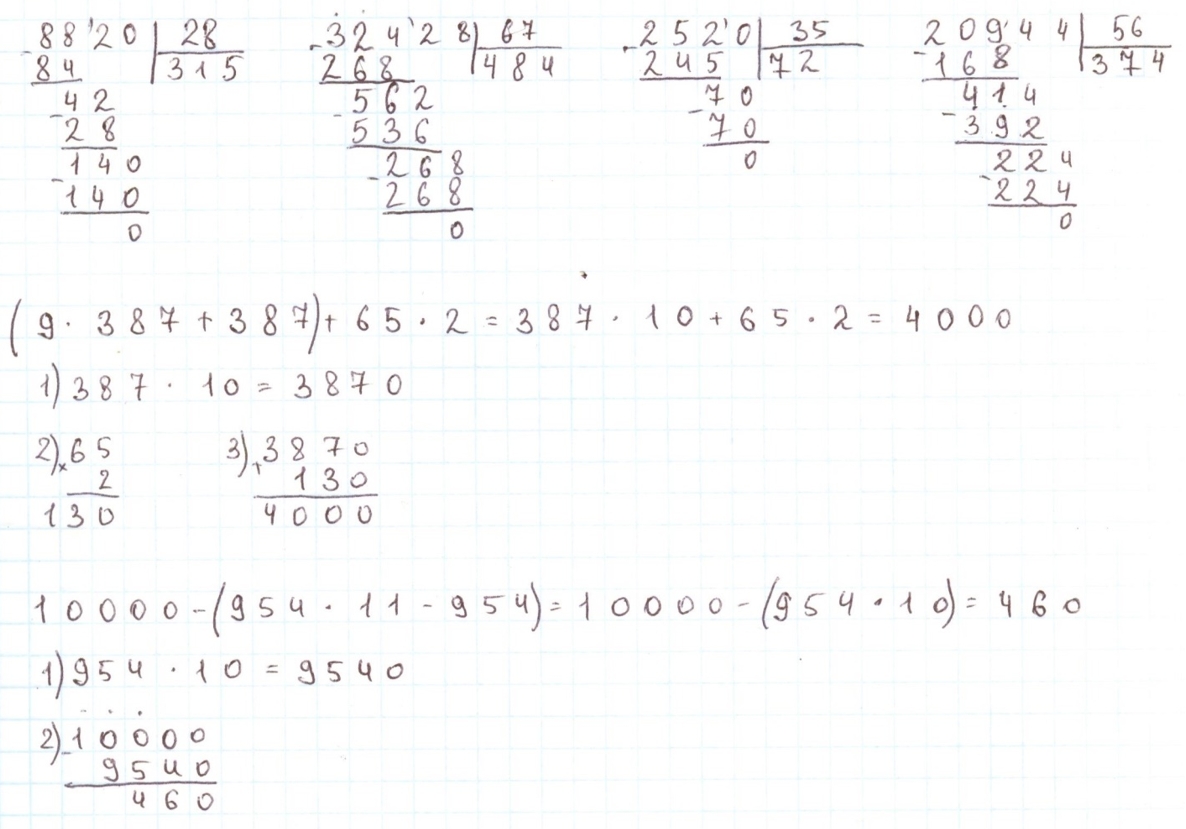 88'20 | 28
- 84 | 315
42
- 28
140
- 140
0
324'28 | 67
- 268 | 484
562
- 536
268
- 268
0
252'0 | 35
- 245 | 72
70
- 70
0
209'44 | 56
- 168 | 374
414
- 392
224
- 224
0
(9 · 387 + 387) + 65 · 2 = 387 · 10 + 65 · 2 = 4000
1) 387 · 10 = 3870
2) × 65
2
130
3) + 3870
130
4000
10000 - (954 · 11 - 954) = 10000 - (954 · 10) = 460
1) 954 · 10 = 9540
2) - 10000
9540
460